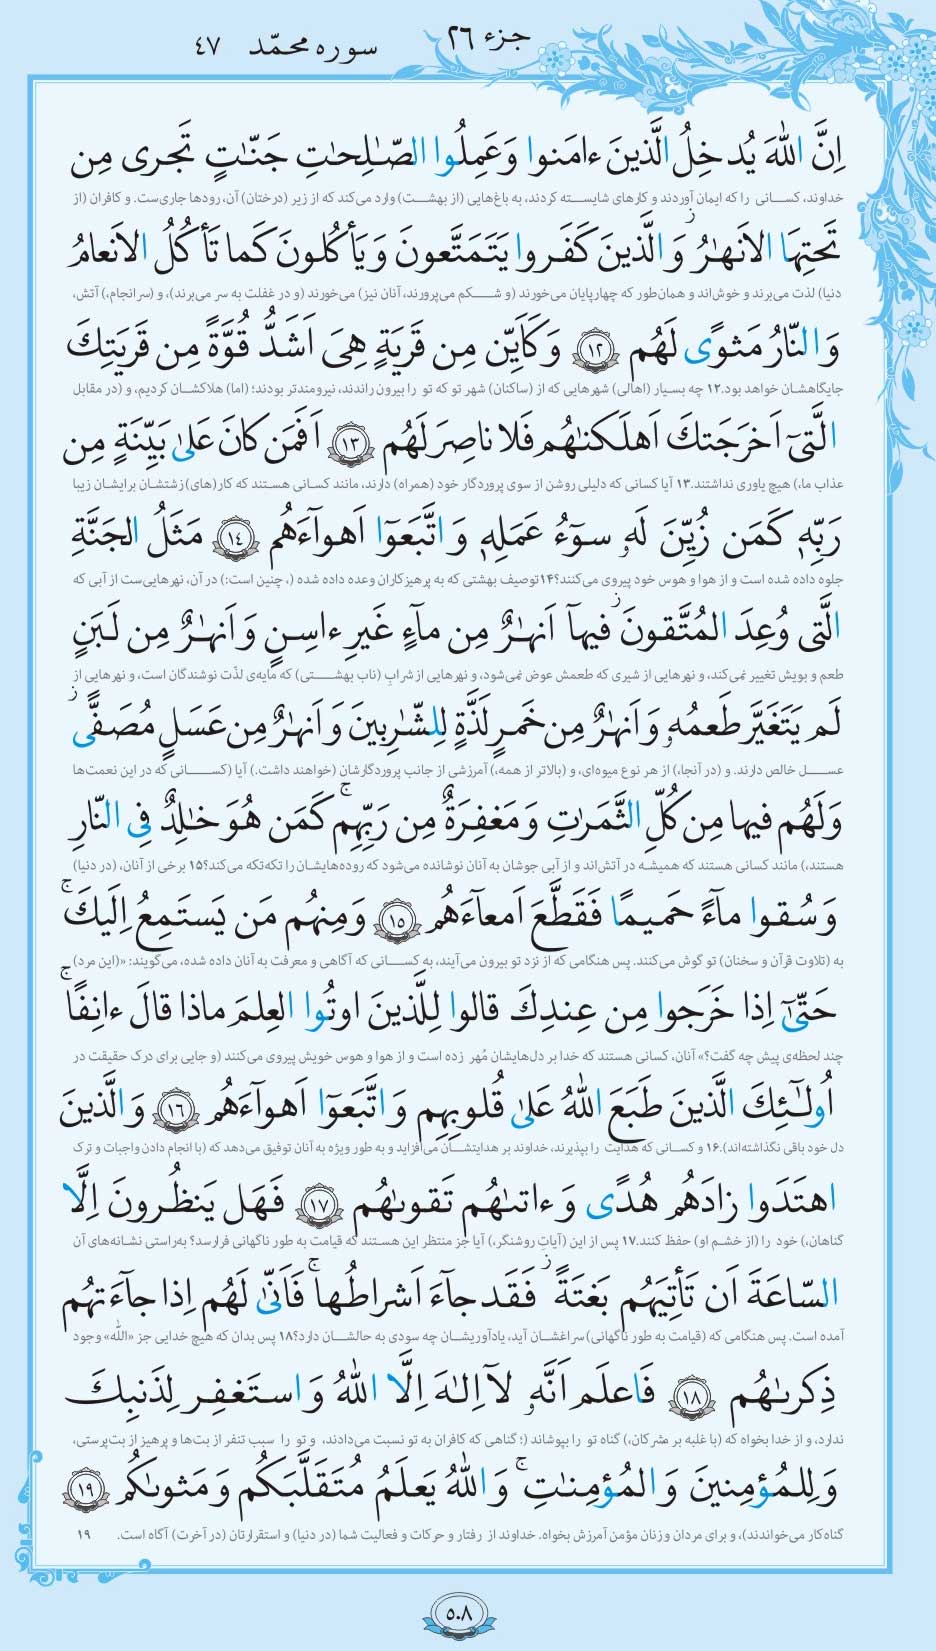 جزء ۲۶
سوره محمّد ۴۷
اِنَّ اللّٰهَ يُدخِلُ الَّذينَ ءامَنوا وَ عَمِلُوا الصّٰلِحٰتِ جَنّٰتٍ تَجرى مِن
خداوند، کسانی را که ایمان آوردند و کارهای شایسته کردند، به باغ‌هایی (از بهشت) وارد می‌کند که از زیر (درختان) آن، رودها جاری‌ست. و کافران (از
تَحتِهَا الاَنهٰرُ ۖ وَ الَّذينَ كَفَروا يَتَمَتَّعونَ وَ يَأكُلونَ كَما تَأكُلُ الاَنعامُ
دنیا) لذت می‌برند و خوش‌اند و همان‌طور که چهارپایان می‌خورند (و شکم می‌پرورند، آنان نیز) می‌خورند (و در غفلت به سر می‌برند)، و (سرانجام،) آتش،
وَ النّارُ مَثوًى لَهُم ۱۲ وَ كَاَيِّن مِن قَريَةٍ هِىَ اَشَدُّ قُوَّةً مِن قَريَتِكَ
جایگاهشان خواهد بود.۱۲ چه بسیار (اهالی) شهرهایی که از (ساکنان) شهر تو که تو را بیرون راندند، نیرومندتر بودند؛ (اما) هلاکشان کردیم، و (در مقابل
الَّتىٓ اَخرَجَتكَ اَهلَكنٰهُم فَلا ناصِرَ لَهُم ۱۳ اَفَمَن كانَ عَلىٰ بَيِّنَةٍ مِن
عذاب ما،) هیچ یاوری نداشتند.۱۳ آیا کسانی که دلیلی روشن از سوی پروردگار خود (همراه) دارند، مانند کسانی هستند که کار(های) زشتشان برایشان زیبا
رَبِّهٖ كَمَن زُيِّنَ لَهٗ سوٓءُ عَمَلِهٖ وَ اتَّبَعوٓا اَهوآءَهُم ۱۴ مَثَلُ الجَنَّةِ
جلوه داده شده است و از هوا و هوس خود پیروی می‌کنند؟۱۴ توصیف بهشتی که به پرهیزکاران وعده داده شده (، چنین است:) در آن، نهرهایی‌ست از آبی که
الَّتى وُعِدَ المُتَّقونَ ۖ فيهآ اَنهٰرٌ مِن مآءٍ غَيرِ ءاسِنٍ وَ اَنهٰرٌ مِن لَبَنٍ
طعم و بویش تغییر نمی‌کند، و نهرهایی از شیری که طعمش عوض نمی‌شود، و نهرهایی از شرابِ (ناب بهشتی) که مایه‌ی لذّت نوشندگان است، و نهرهایی از
لَم يَتَغَيَّر طَعمُهٗ وَ اَنهٰرٌ مِن خَمرٍ لَذَّةٍ لِلشّٰرِبينَ وَ اَنهٰرٌ مِن عَسَلٍ مُصَفًّى ۖ
عسل خالص دارند. و (در آنجا،) از هر نوع میوه‌ای، و (بالاتر از همه،) آمرزشی از جانب پروردگارشان (خواهند داشت.) آیا (کسانی که در این نعمت‌ها
وَ لَهُم فيها مِن كُلِّ الثَّمَرٰتِ وَ مَغفِرَةٌ مِن رَبِّهِم ۚ كَمَن هُوَ خٰلِدٌ فِى النّارِ
هستند،) مانند کسانی هستند که همیشه در آتش‌اند و از آبی جوشان به آنان نوشانده می‌شود که روده‌هایشان را تکه‌تکه می‌کند؟۱۵ برخی از آنان، (در دنیا)
وَ سُقوا مآءً حَميمًا فَقَطَّعَ اَمعآءَهُم ۱۵ وَ مِنهُم مَن يَستَمِعُ اِلَيكَ ۚ
به (تلاوت قرآن و سخنان) تو گوش می‌کنند. پس هنگامی که از نزد تو بیرون می‌آیند، به کسانی که آگاهی و معرفت به آنان داده شده، می‌گویند: «(این مرد)
حَتّىٰٓ اِذا خَرَجوا مِن عِندِكَ قالوا لِلَّذينَ اوتُوا العِلمَ ماذا قالَ ءانِفًا ۚ
چند لحظه‌ی پیش چه گفت؟» آنان، کسانی هستند که خدا بر دل‌هایشان مُهر زده است و از هوا و هوس خویش پیروی می‌کنند (و جایی برای درک حقیقت در
اُولٰٓئِكَ الَّذينَ طَبَعَ اللّٰهُ عَلىٰ قُلوبِهِم وَ اتَّبَعوٓا اَهوآءَهُم ۱۶ وَ الَّذينَ
دل خود باقی نگذاشته‌اند).۱۶ و کسانی که هدایت را بپذیرند، خداوند بر هدایتشان می‌افزاید و به طور ویژه به آنان توفیق می‌دهد که (با انجام دادن واجبات و ترک
اهتَدَوا زادَهُم هُدًى وَ ءاتىٰهُم تَقوىٰهُم ۱۷ فَهَل يَنظُرونَ اِلَّا
گناهان،) خود را (از خشم او) حفظ کنند.۱۷ پس از این (آیاتِ روشنگر،) آیا جز منتظر این هستند که قیامت به طور ناگهانی فرارسد؟ به‌راستی نشانه‌های آن
السّاعَةَ اَن تَأتِيَهُم بَغتَةً ۖ فَقَد جآءَ اَشراطُها ۚ فَاَنّىٰ لَهُم اِذا جآءَتهُم
آمده است. پس هنگامی که (قیامت به طور ناگهانی) سراغشان آید، یادآوریشان چه سودی به حالشان دارد؟۱۸ پس بدان که هیچ خدایی جز «اللّٰه» وجود
ذِكرىٰهُم ۱۸ فَاعلَم اَنَّهٗ لآ اِلٰهَ اِلَّا اللّٰهُ وَ استَغفِر لِذَنبِكَ
ندارد، و از خدا بخواه که (با غلبه بر مشرکان،) گناه تو را بپوشاند (؛ گناهی که کافران به تو نسبت می‌دادند، و تو را سبب تنفر از بت‌ها و پرهیز از بت‌پرستی،
وَ لِلمُؤمِنينَ وَ المُؤمِنٰتِ ۚ وَ اللّٰهُ يَعلَمُ مُتَقَلَّبَكُم وَ مَثوىٰكُم ۱۹
گناه‌کار می‌خواندند)، و برای مردان و زنان مؤمن آمرزش بخواه. خداوند از رفتار و حرکات و فعالیت شما (در دنیا) و استقرارتان (در آخرت) آگاه است. ۱۹
۵۰۸